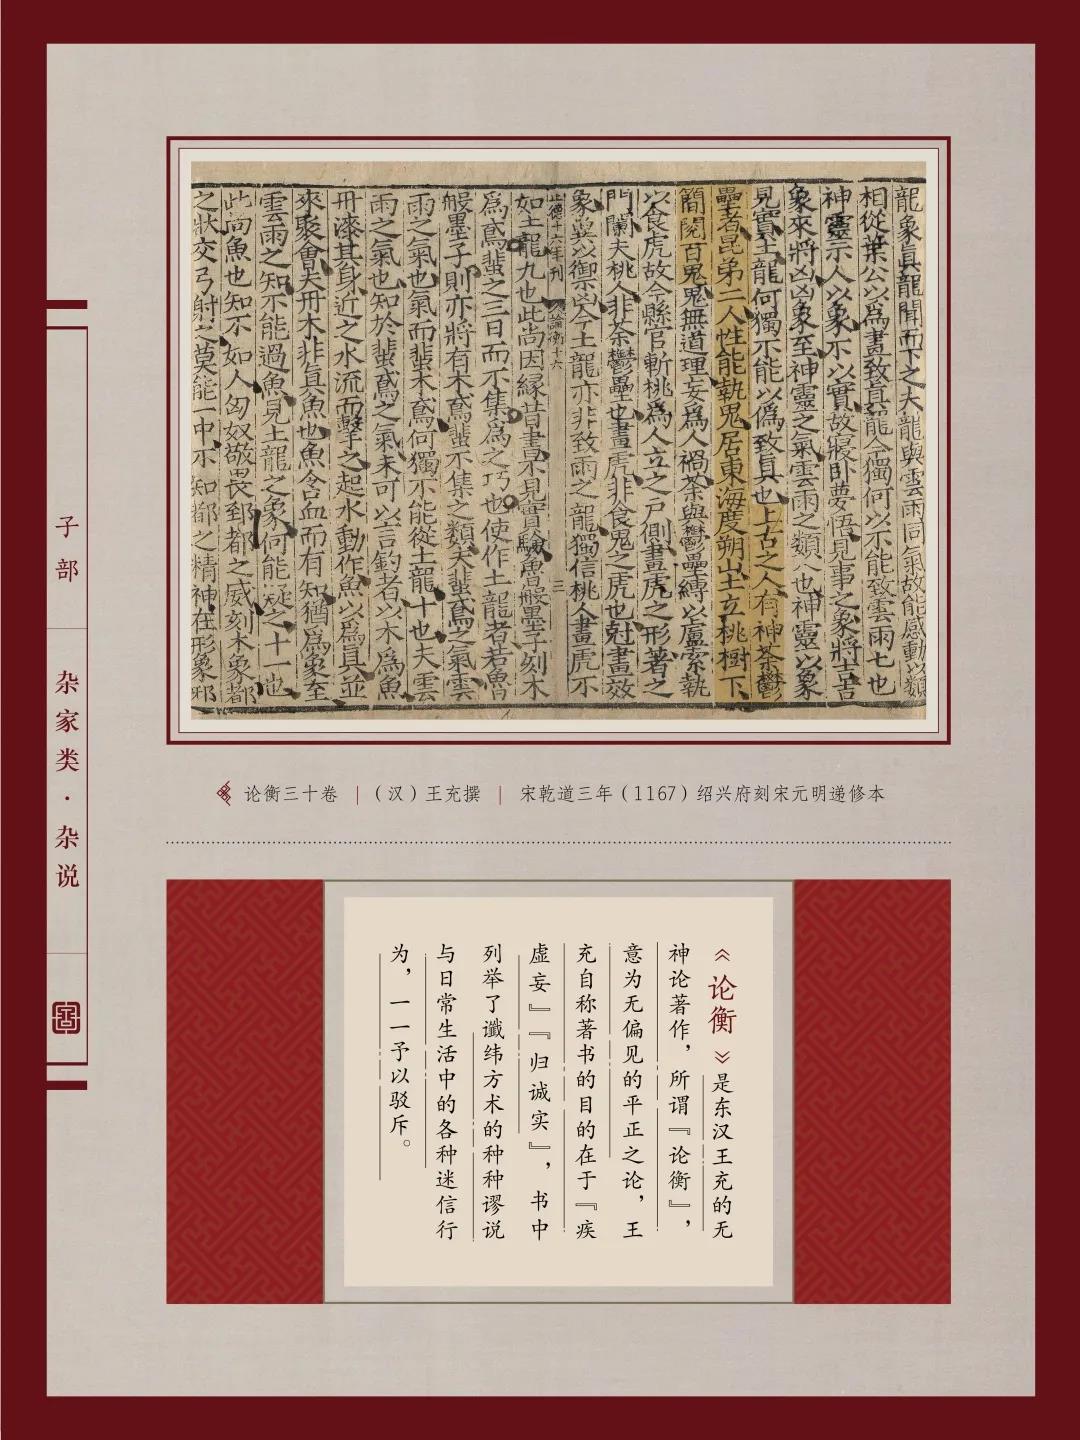 龍象眞龍聞而下之夫龍與雲雨同氣故能感動以類
相從葉公以爲畫致眞龍今獨何以不能致雲雨七也
神靈示人以象不以實故寢卧夢悟見事之象將吉吉
象來將凶凶象至神靈之氣雲雨之類八也神靈以象
見實土龍何獨不能以僞致眞也上古之人有神荼鬱
壘者昆弟二人性能執鬼居東海度朔山上立桃樹下
簡閱百鬼鬼無道理妄爲人禍荼與鬱壘縛以盧索執
以食虎故今縣官斬桃爲人立之戶側畫虎之形著之
門闌夫桃人非荼鬱壘也畫虎非食鬼之虎也尅畫效
象冀以御凶今土龍亦非致雨之龍獨信桃人畫虎不
正德十六年刊 論衡十六 三
如土龍九也此尚因緣昔書不見實驗魯般墨子刻木
爲鳶蜚之三日而不集爲之巧也使作土龍者若魯
般墨子則亦將有木鳶蜚不集之類夫蜚鳶之氣雲
雨之氣也氣而蜚木鳶何獨不能從土龍十也夫雲
雨之氣也知於蜚鳶之氣未可以言釣者以木爲魚
丹漆其身近之水流而擊之起水動作魚以爲眞並
來聚會夫丹木非眞魚也魚含血而有知猶爲象至
雲雨之知不能過魚見土龍之象何能疑之十一也
此尚魚也知不如人匈奴敬畏郅都之威刻木象都
之狀交弓射之莫能一中不知都之精神在形象邪
子部
杂家类·杂说
论衡三十卷 |（汉）王充撰 | 宋乾道三年（1167）绍兴府刻宋元明递修本
《论衡》是东汉王充的无
神论著作，所谓『论衡』，
意为无偏见的平正之论，王
充自称著书的目的在于『疾
虚妄』『归诚实』，书中
列举了谶纬方术的种种谬说
与日常生活中的各种迷信行
为，一一予以驳斥。